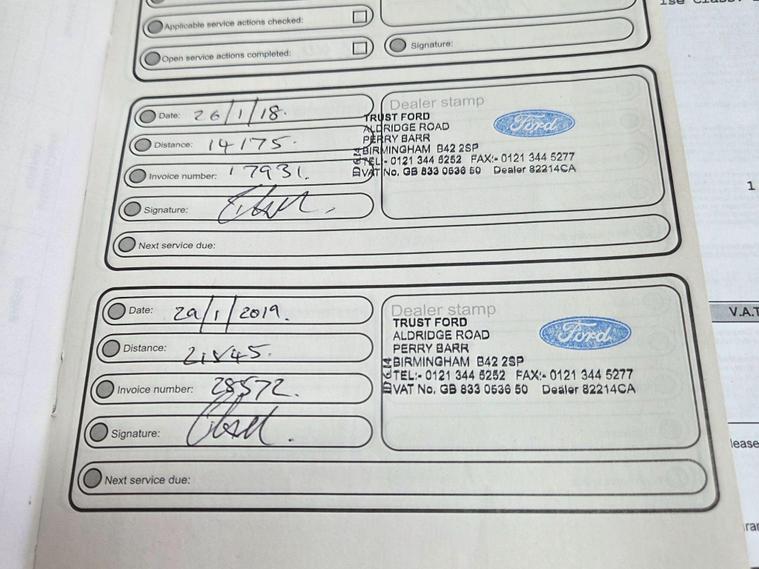 Applicable service actions checked:
Open service actions completed:
Signature:
Date: 26/1/18.
Distance: 14175.
Invoice number: 17931.
Signature:
Next service due:
Dealer stamp
TRUST FORD
ALDRIDGE ROAD
PERRY BARR
BIRMINGHAM B42 2SP
TEL:- 0121 344 5252 FAX:- 0121 344 5277
VAT No. GB 833 0536 50 Dealer 82214CA
Ford
Date: 29/1/2019.
Distance: 21845.
Invoice number: 28572.
Signature:
Next service due:
Dealer stamp
TRUST FORD
ALDRIDGE ROAD
PERRY BARR
BIRMINGHAM B42 2SP
TEL:- 0121 344 5252 FAX:- 0121 344 5277
VAT No. GB 833 0536 50 Dealer 82214CA
Ford
1
V.A.T